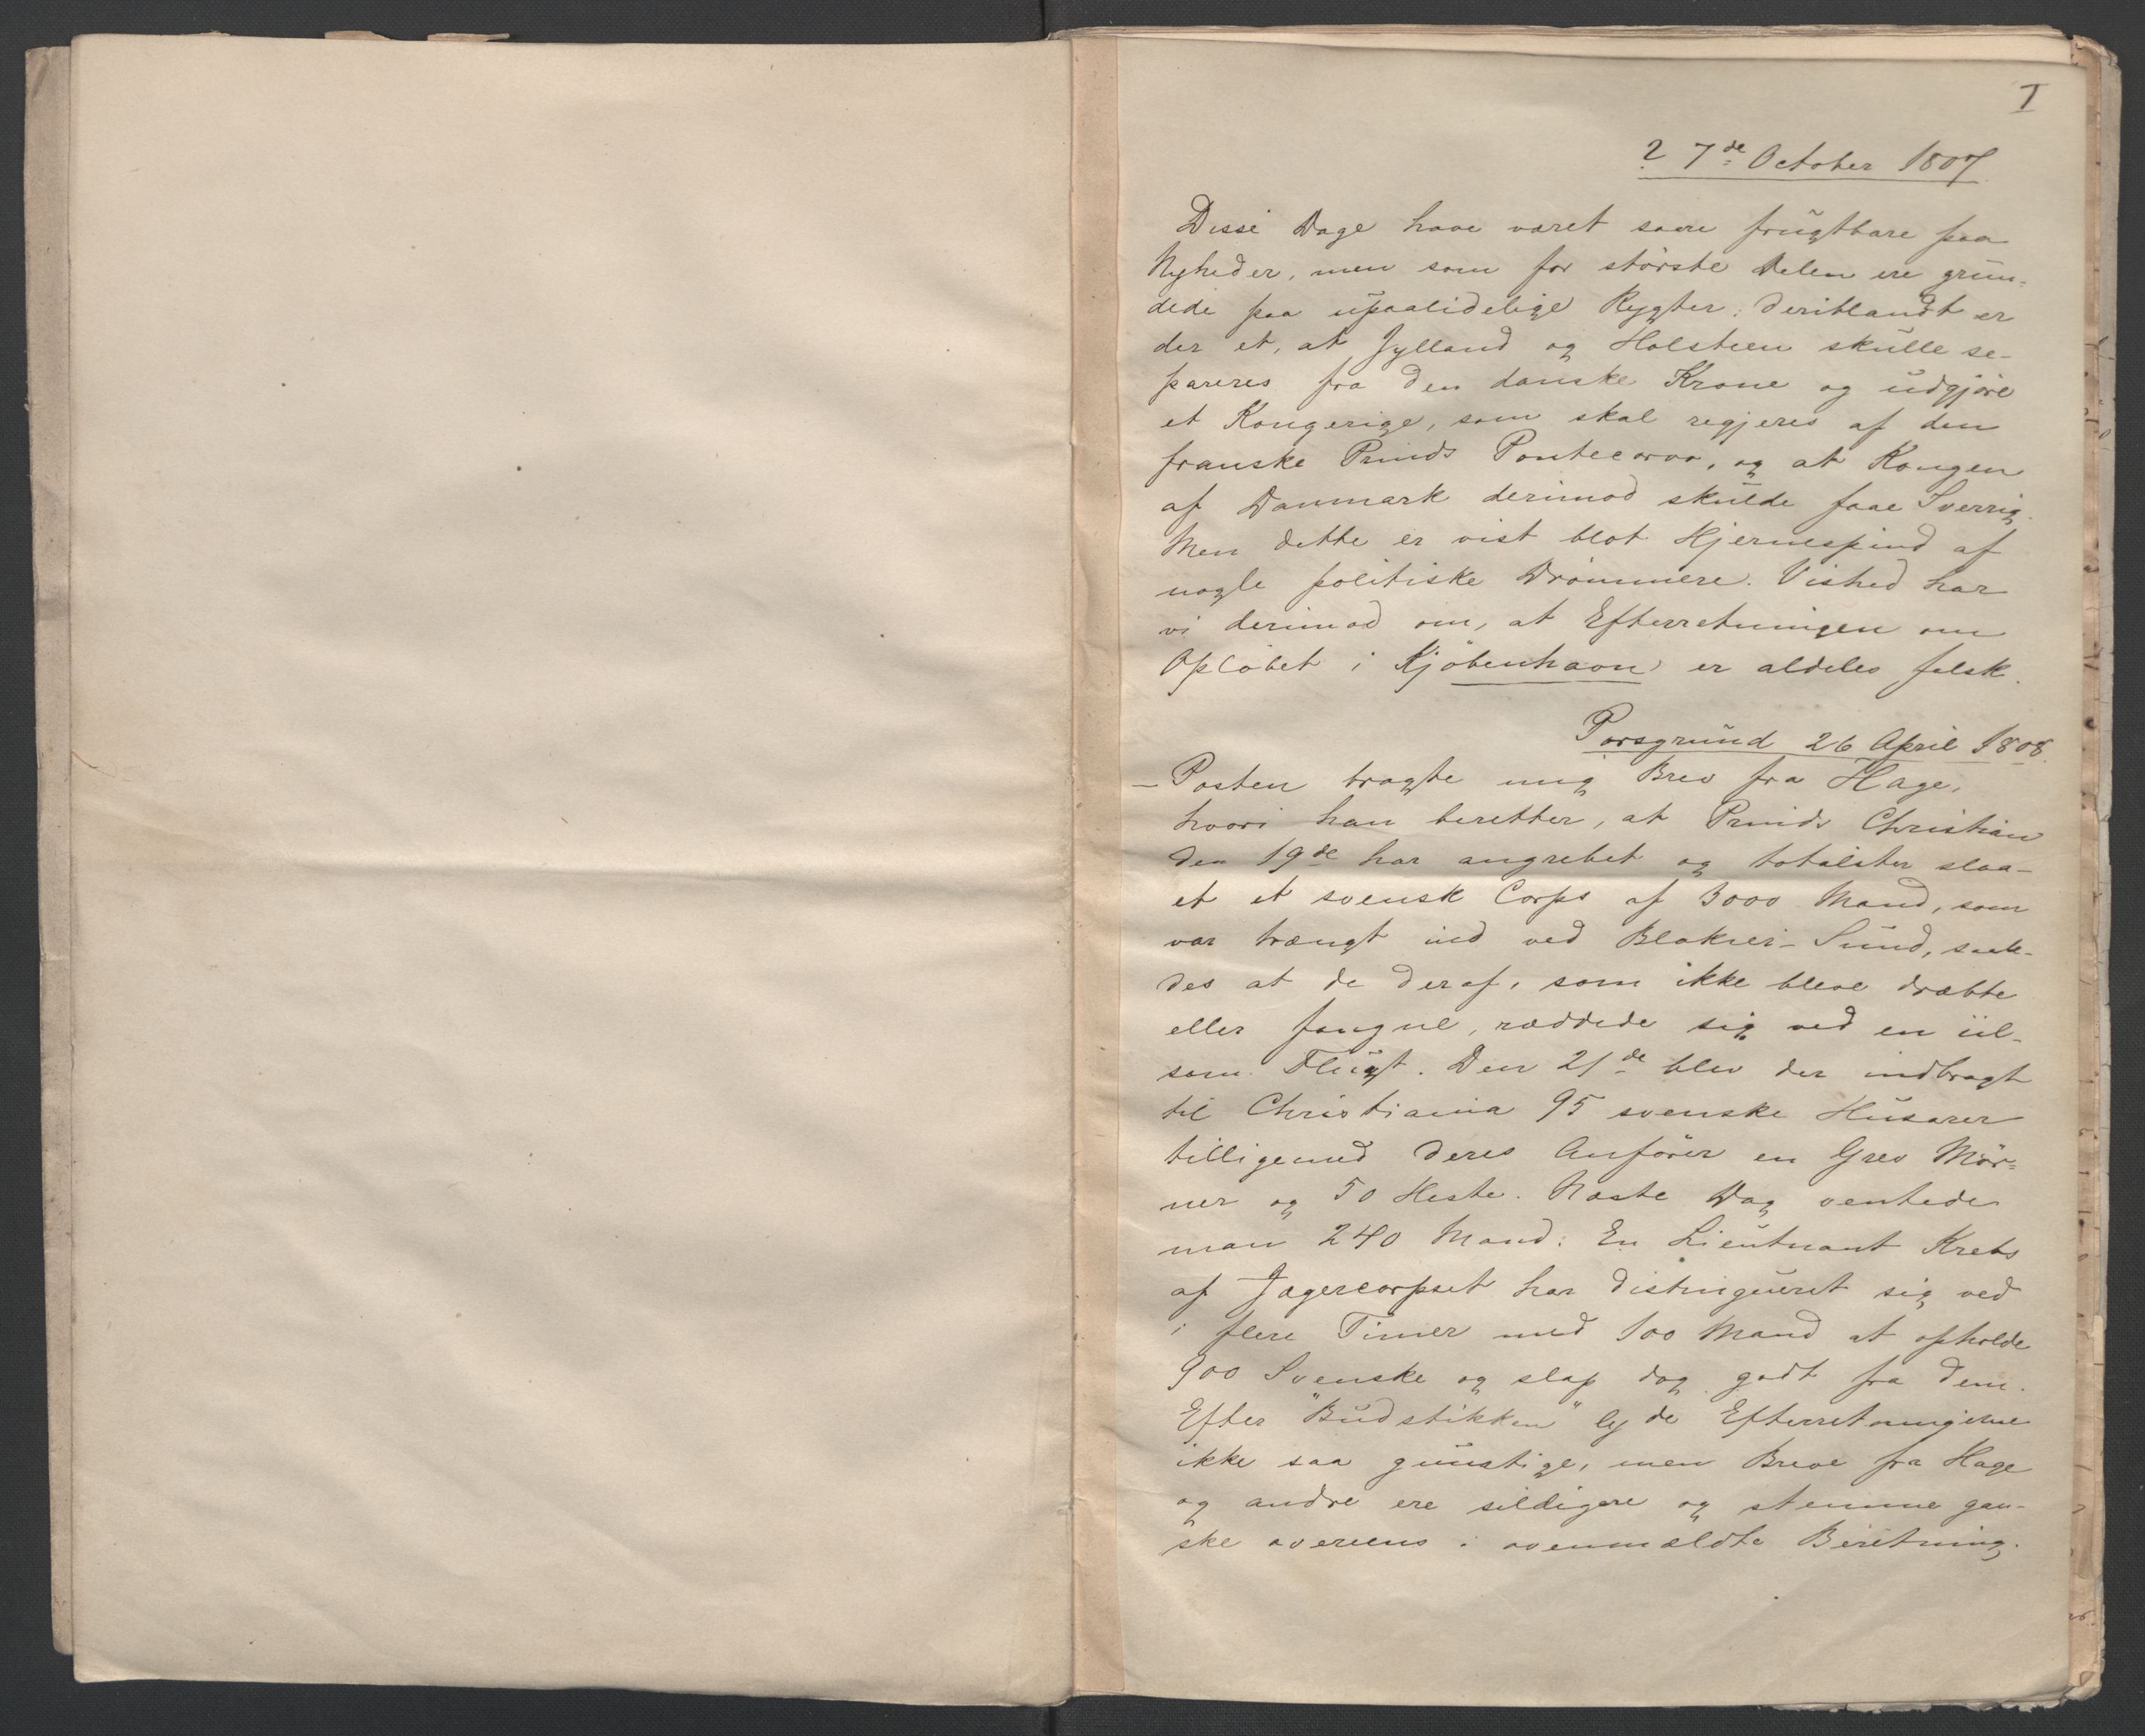 I
27de October 1807
Disse Dage have været saare frugtbare paa
Nyheder, men som for störste Delen ere grun-
dede paa upaalidelige Rygter; deriblandt er
der et, at Jylland og Holsteen skulle se-
pareres fra den danske Krone og udgjöre
et Kongerige, som skal regjeres af den
franske Prinds Pontecorvo, og at Kongen
af Danmark derimod skulde faae Sverrig.
Men dette er vist blot Hjernespind af
nogle politiske Drömmere. Vished har
vi derimod om, at Efterretningen om
Oplöbet i Kjöbenhavn er aldeles falsk.
Porsgrund 26 April 1808.
- Posten bragte mig Brev fra Hage,
hvori han beretter, at Prinds Christian
den 19de har angrebet og totaliter slaa-
et et svensk Corps af 3000 Mand, som
var trængt ind ved Blakier-Sund, saale-
des at de deraf, som ikke bleve dræbte
eller fangne, reddede sig ved en iil-
som Flugt. Den 21de blev der indbragt
til Christiania 95 svenske Husarer
tilligemed deres Anförer en Grev Mör-
ner og 50 Heste. Næste Dag ventede
man 240 Mand: En Lieutnant Krebs
af Jægercorpset har distingueret sig ved
i flere Timer med 100 Mand at opholde
900 Svenske og slap dog godt fra dem.
Efter "Budstikken" lyde Efterretningerne
ikke saa gunstige, men Breve fra Hage
og andre ere sildigere og stemme gan-
ske overeens i ovenmældte Beretning.